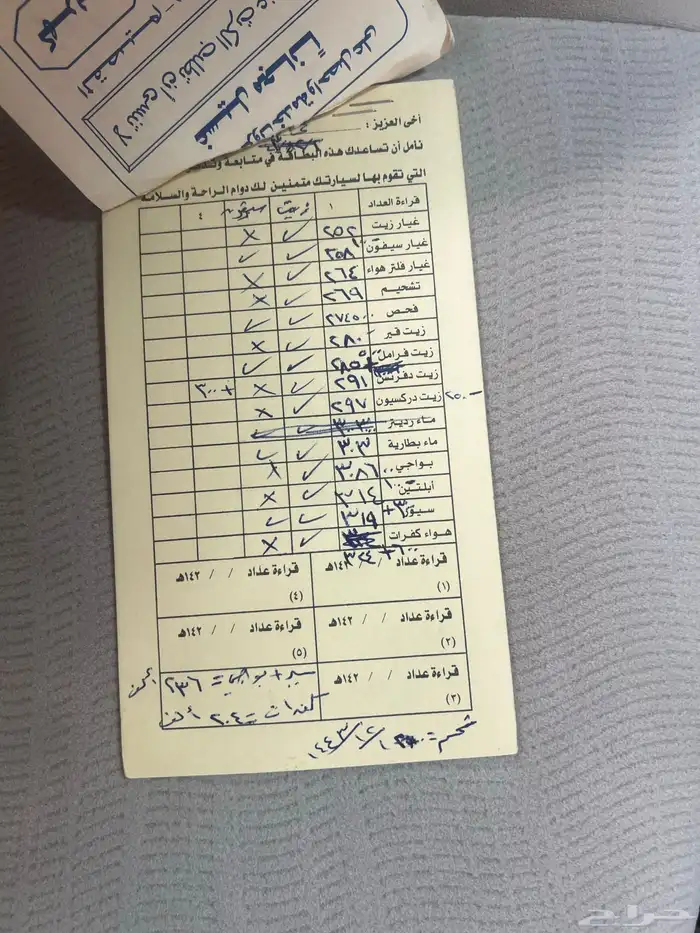 لا تنسى أن تطلب الكرت
غسيل مجاناً
أخي العزيز :
نأمل أن تساعدك هذه البطاقة في متابعة
التي تقوم بها لسيارتك متمنين لك دوام الراحة والسلامة
قراءة العداد ١ زيت سيفون ٤
غيار زيت ٢٥٢ ✓ ×
غيار سيفون ٢٥٨ ✓ ✓
غيار فلتر هواء ٢٦٤ ✓ ×
تشحيم ٢٦٩ ✓ ×
فحص ٢٧٤٥٠٠ ✓ ✓
زيت قير ٢٨٠ ✓ ×
زيت فرامل ٢٨٥ ✓ ✓
زيت دفرنش ٢٩١ ✓ × +٣٠٠
زيت دركسيون ٢٩٧ ✓ × ٢٥٠٠
ماء رديتر ✓ ✓
ماء بطارية ٣٠٣ ✓ ✓
بواجي ٣٠٨٦ ✓ ×
أبلتين ٣١٤ ✓ ×
سيور +٣ ٣١٩ ✓ ✓
هواء كفرات ✓ ×
٣٢٤ +٦٠٠
قراءة عداد / / ١٤٢هـ
(١)
قراءة عداد / / ١٤٢هـ
(٤)
قراءة عداد / / ١٤٢هـ
(٢)
قراءة عداد / / ١٤٢هـ
(٥)
قراءة عداد / / ١٤٢هـ
(٣)
سير + بواجي = ٢٣٦ ألف
كفرات = ٢٠٤ ألف
شحم =
١٤٤٣/١٢/١
حراج